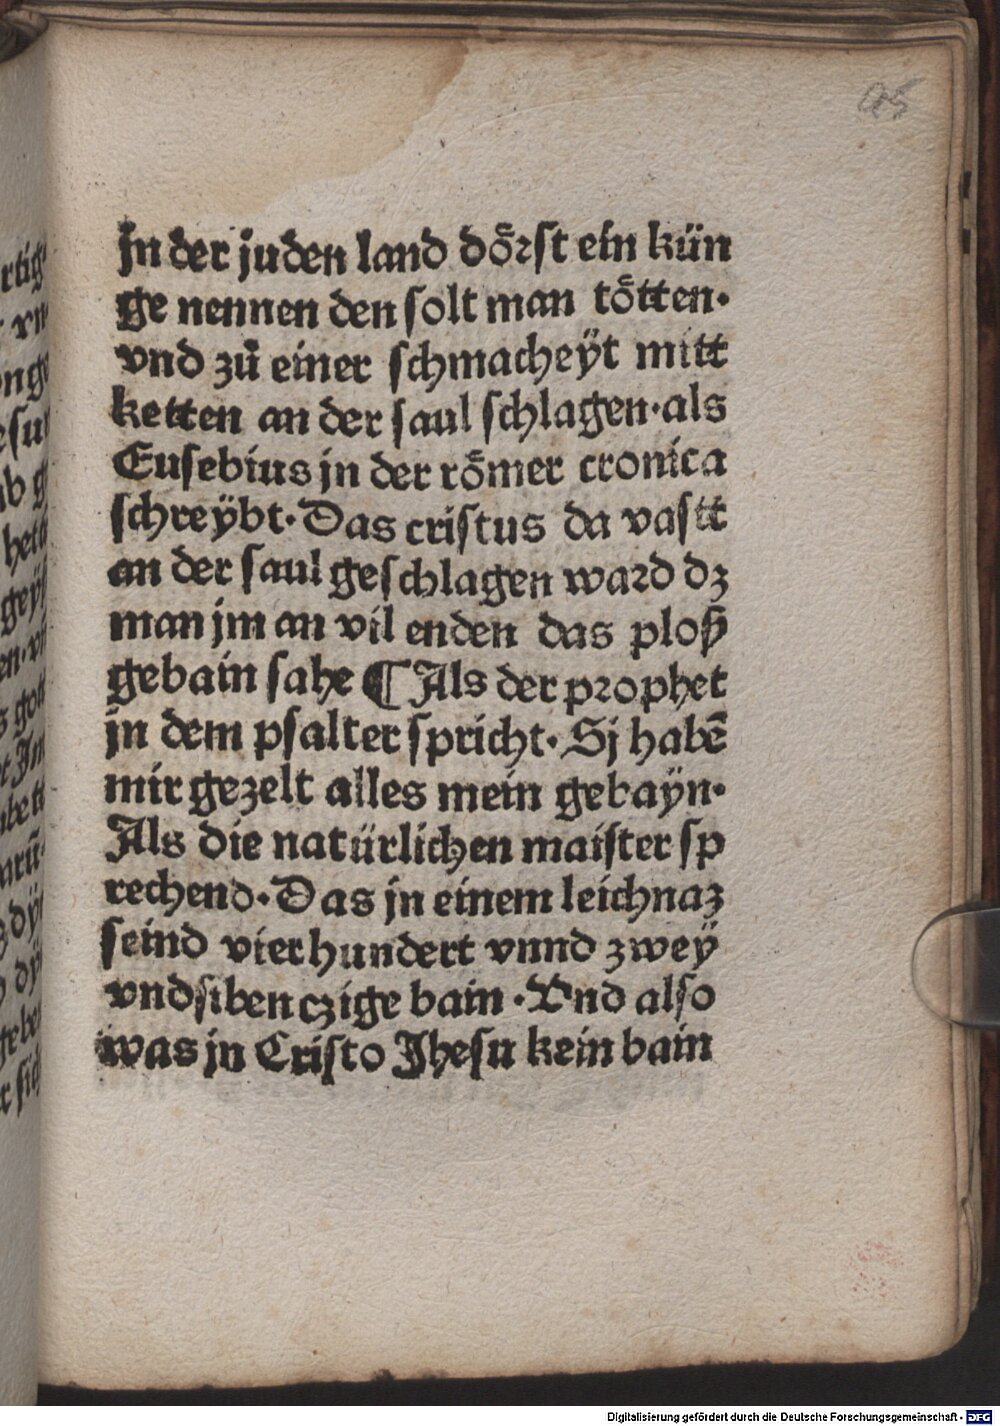 jn der juden land dörst ein kün
ge nennen den solt man tötten·
vnd zů einer schmacheÿt mitt
ketten an der saul schlagen·als
Eusebius jn der römer cronica
schreÿbt·Das cristus da vastt
an der saul geschlagen ward dz
man jm an vil enden das ploß
gebain sahe ¶ Als der prophet
jn dem psalter spricht· Sj habē
mir gezelt alles mein gebaÿn·
Als die natürlichen maister sp
rechend·Das jn einem leichnaz
seind vierhundert vnnd zweÿ
vndsibenczige bain·Vnd also
was jn Cristo Jhesu kein bain
Digitalisierung gefördert durch die Deutsche Forschungsgemeinschaft - DFG